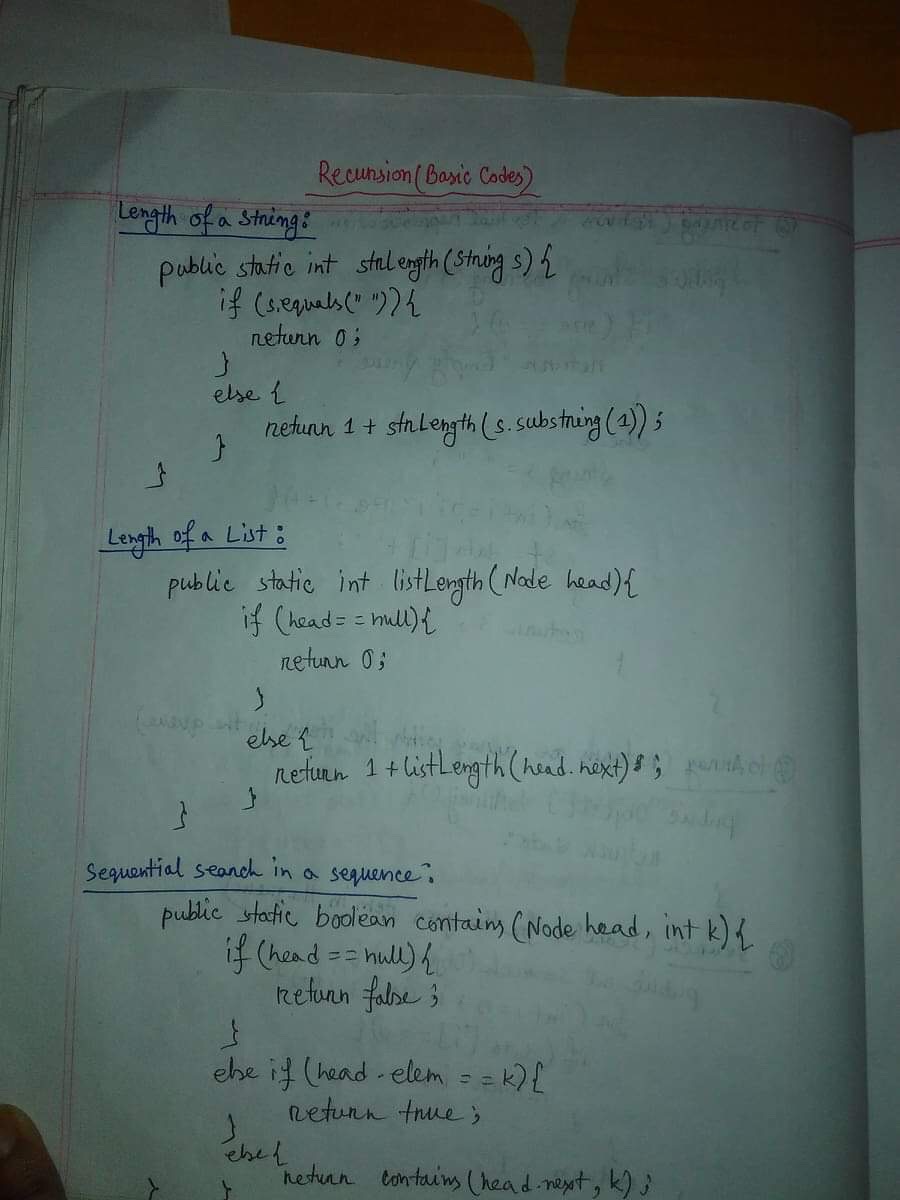 Recursion (Basic Codes)
Length of a String:
public static int strLength (String s) {
if (s.equals(" ")) {
return 0;
}
else {
return 1 + strLength (s.substring(1));
}
}
Length of a List:
public static int listLength (Node head) {
if (head == null) {
return 0;
}
else {
return 1 + listLength (head.next) ;
}
}
Sequential search in a sequence:
public static boolean contains (Node head, int k) {
if (head == null) {
return false;
}
else if (head.elem == k) {
return true;
}
else {
return contains (head.next, k);
} }